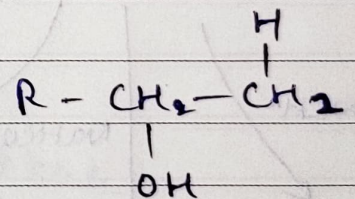 H
R - CH₂ - CH₂
OH